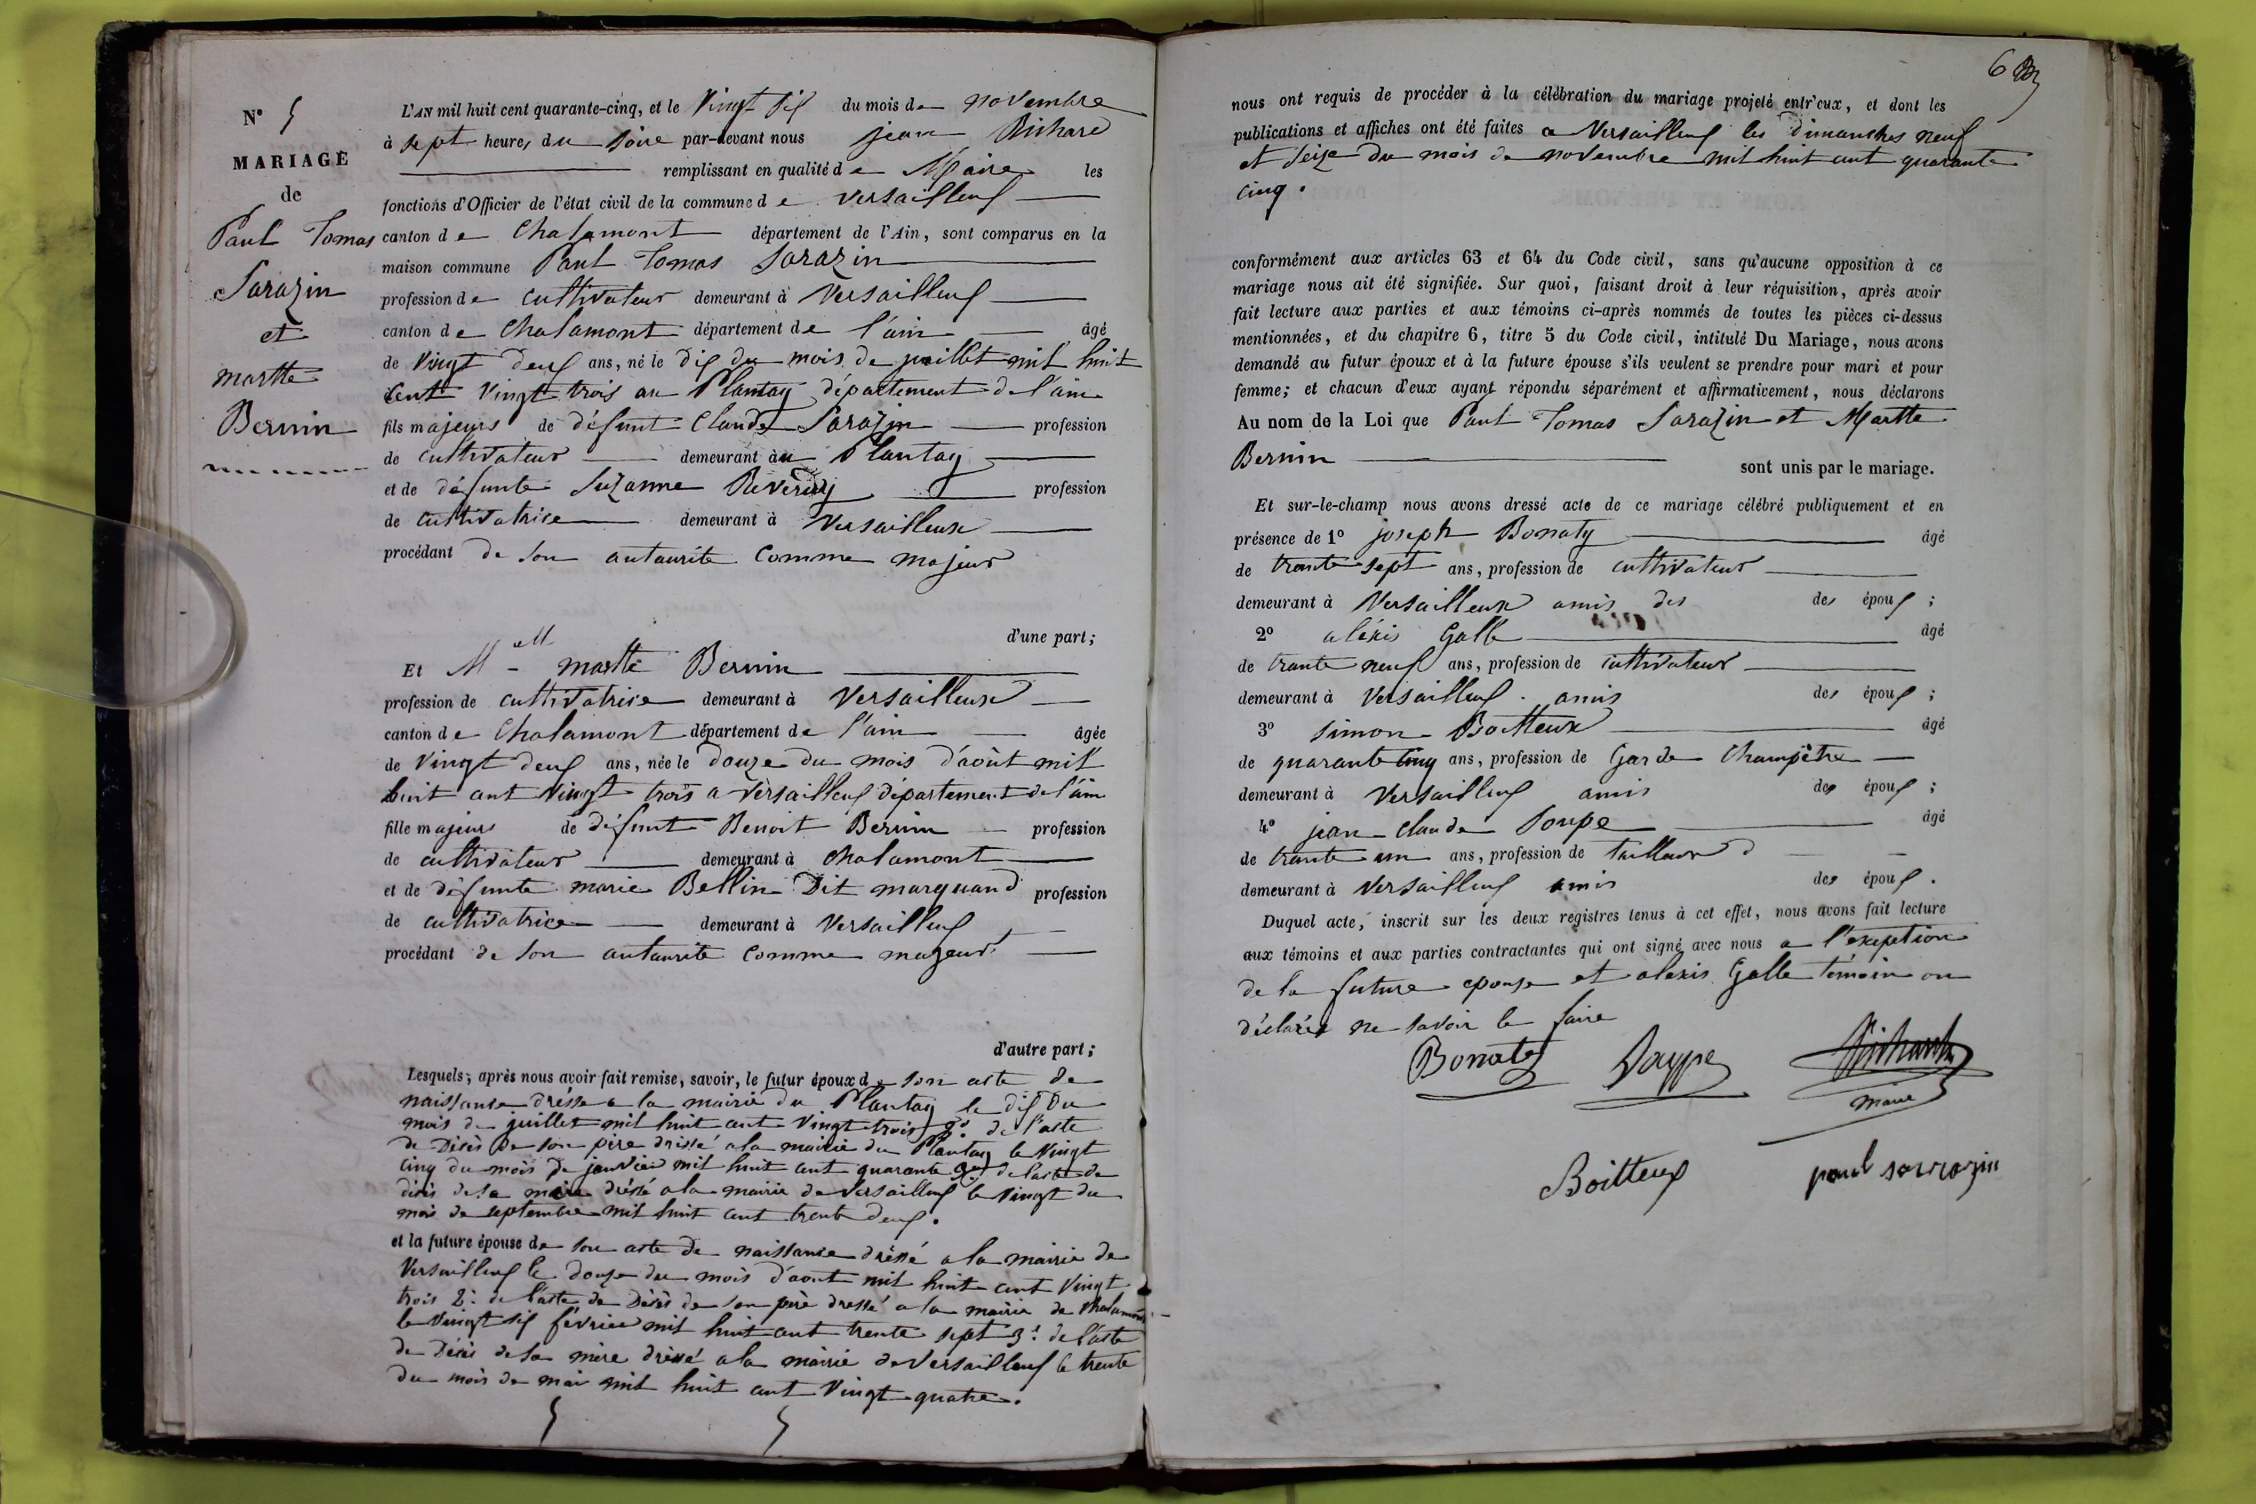 N° 5
MARIAGE
de
Paul Tomas
Sarazin
et
martte
Bernin
L'AN mil huit cent quarante-cinq, et le Vingt six du mois de novembre
à sept heures du soire par-devant nous jean Richard
remplissant en qualité de Maire les
fonctions d'Officier de l'état civil de la commune de versailleux
canton de Chalamont département de l'Ain, sont comparus en la
maison commune Paul Tomas Sarazin
profession de cultivateur demeurant à Versailleux
canton de Chalamont département de l'ain âgé
de Vingt deux ans, né le dix du mois de juillet mil huit
Cent Vingt trois au Plantay département de l'ain
fils majeurs de défunt Claude Sarazin profession
de cultivateur demeurant àu Plantay
et de défunte Suzanne Reverdy profession
de cultivatrice demeurant à Versailleux
procédant de son autaurite comme majeur
d'une part;
Et Melle martte Bernin
profession de cultivatrice demeurant à Versailleux
canton de Chalamont département de l'ain âgée
de Vingt deux ans, née le douze du mois d'août mil
huit cent vingt trois a Versailleux département de l'ain
fille majeurs de défunt Benoit Bernin profession
de cultivateur demeurant à chalamont
et de défunte marie Bellin Dit marquand profession
de cultivatrice demeurant à Versailleux
procédant de son autaurite comme mageur
d'autre part;
Lesquels, après nous avoir fait remise, savoir, le futur époux de son acte de
naissance drésse a la mairie du Plantay le dix du
mois de juillet mil huit cent vingt trois 2° de l'acte
de Décès de son père dréssé a la mairie du Plantay le Vingt
cinq du mois de janvier mil huit cent quarante 3° de l'acte de
décès de sa mère dréssé a la mairie de Versailleux le vingt du
mois de septembre mil huit cent trente deux.
et la future épouse de son acte de naissance dréssé a la mairie de
Versailleux le douze du mois d'aout mil huit cent vingt
trois 2° de l'acte de Décès de son père dressé a la mairie de chalamont
le vingt six février mil huit cent trente sept 3° de l'acte
de Décès de sa mère dréssé a la mairie de Versailleux le trente
du mois de mai mil huit cent Vingt quatre.
6
nous ont requis de procéder à la célébration du mariage projeté entr'eux, et dont les
publications et affiches ont été faites a Versailleux les dimanches neuf
et seize du mois de novembre mil huit cent quarante
cinq.
conformément aux articles 63 et 64 du Code civil, sans qu'aucune opposition à ce
mariage nous ait été signifiée. Sur quoi, faisant droit à leur réquisition, après avoir
fait lecture aux parties et aux témoins ci-après nommés de toutes les pièces ci-dessus
mentionnées, et du chapitre 6, titre 5 du Code civil, intitulé Du Mariage, nous avons
demandé au futur époux et à la future épouse s'ils veulent se prendre pour mari et pour
femme; et chacun d'eux ayant répondu séparément et affirmativement, nous déclarons
Au nom de la Loi que Paul Tomas Sarazin et Martte
Bernin sont unis par le mariage.
Et sur-le-champ nous avons dressé acte de ce mariage célébré publiquement et en
présence de 1° joseph Bonaty âgé
de trante sept ans, profession de cultivateur
demeurant à Versailleux amis des des époux;
2° aléxis Galle âgé
de trante neuf ans, profession de cultivateur
demeurant à Versailleux amis des époux;
3° simon Boitteux âgé
de quarante cinq ans, profession de Garde Champêtre
demeurant à Versailleux amis des époux;
4° jean Claude Soupe âgé
de trante un ans, profession de tailleur d
demeurant à Versailleux amis des époux.
Duquel acte, inscrit sur les deux registres tenus à cet effet, nous avons fait lecture
aux témoins et aux parties contractantes qui ont signé avec nous a l'exeption
de la future epouse et alexis Galle témoin on
déclarés ne savoir le faire
Bonaty Soyppe Richard
maire
Boitteux paul sarrazin